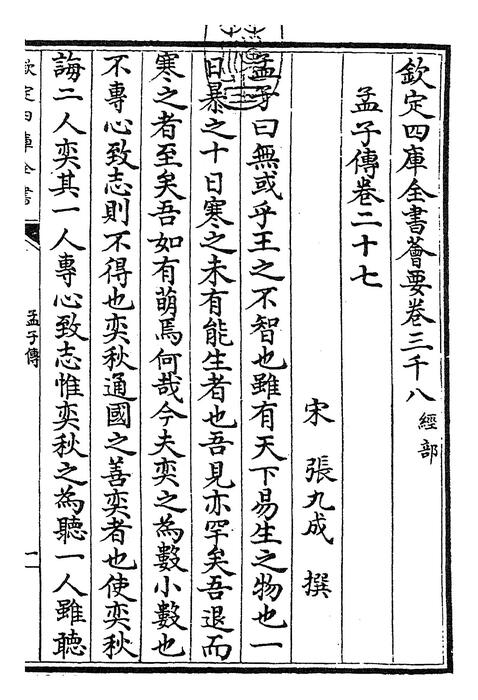 欽定四庫全書薈要卷三千八 經部
孟子傳卷二十七
宋 張九成 撰
孟子曰無或乎王之不智也雖有天下易生之物也一
日暴之十日寒之未有能生者也吾見亦罕矣吾退而
寒之者至矣吾如有萌焉何哉今夫奕之為數小數也
不專心致志則不得也奕秋通國之善奕者也使奕秋
誨二人奕其一人專心致志惟奕秋之為聽一人雖聽
欽定四庫全書
孟子傳
一